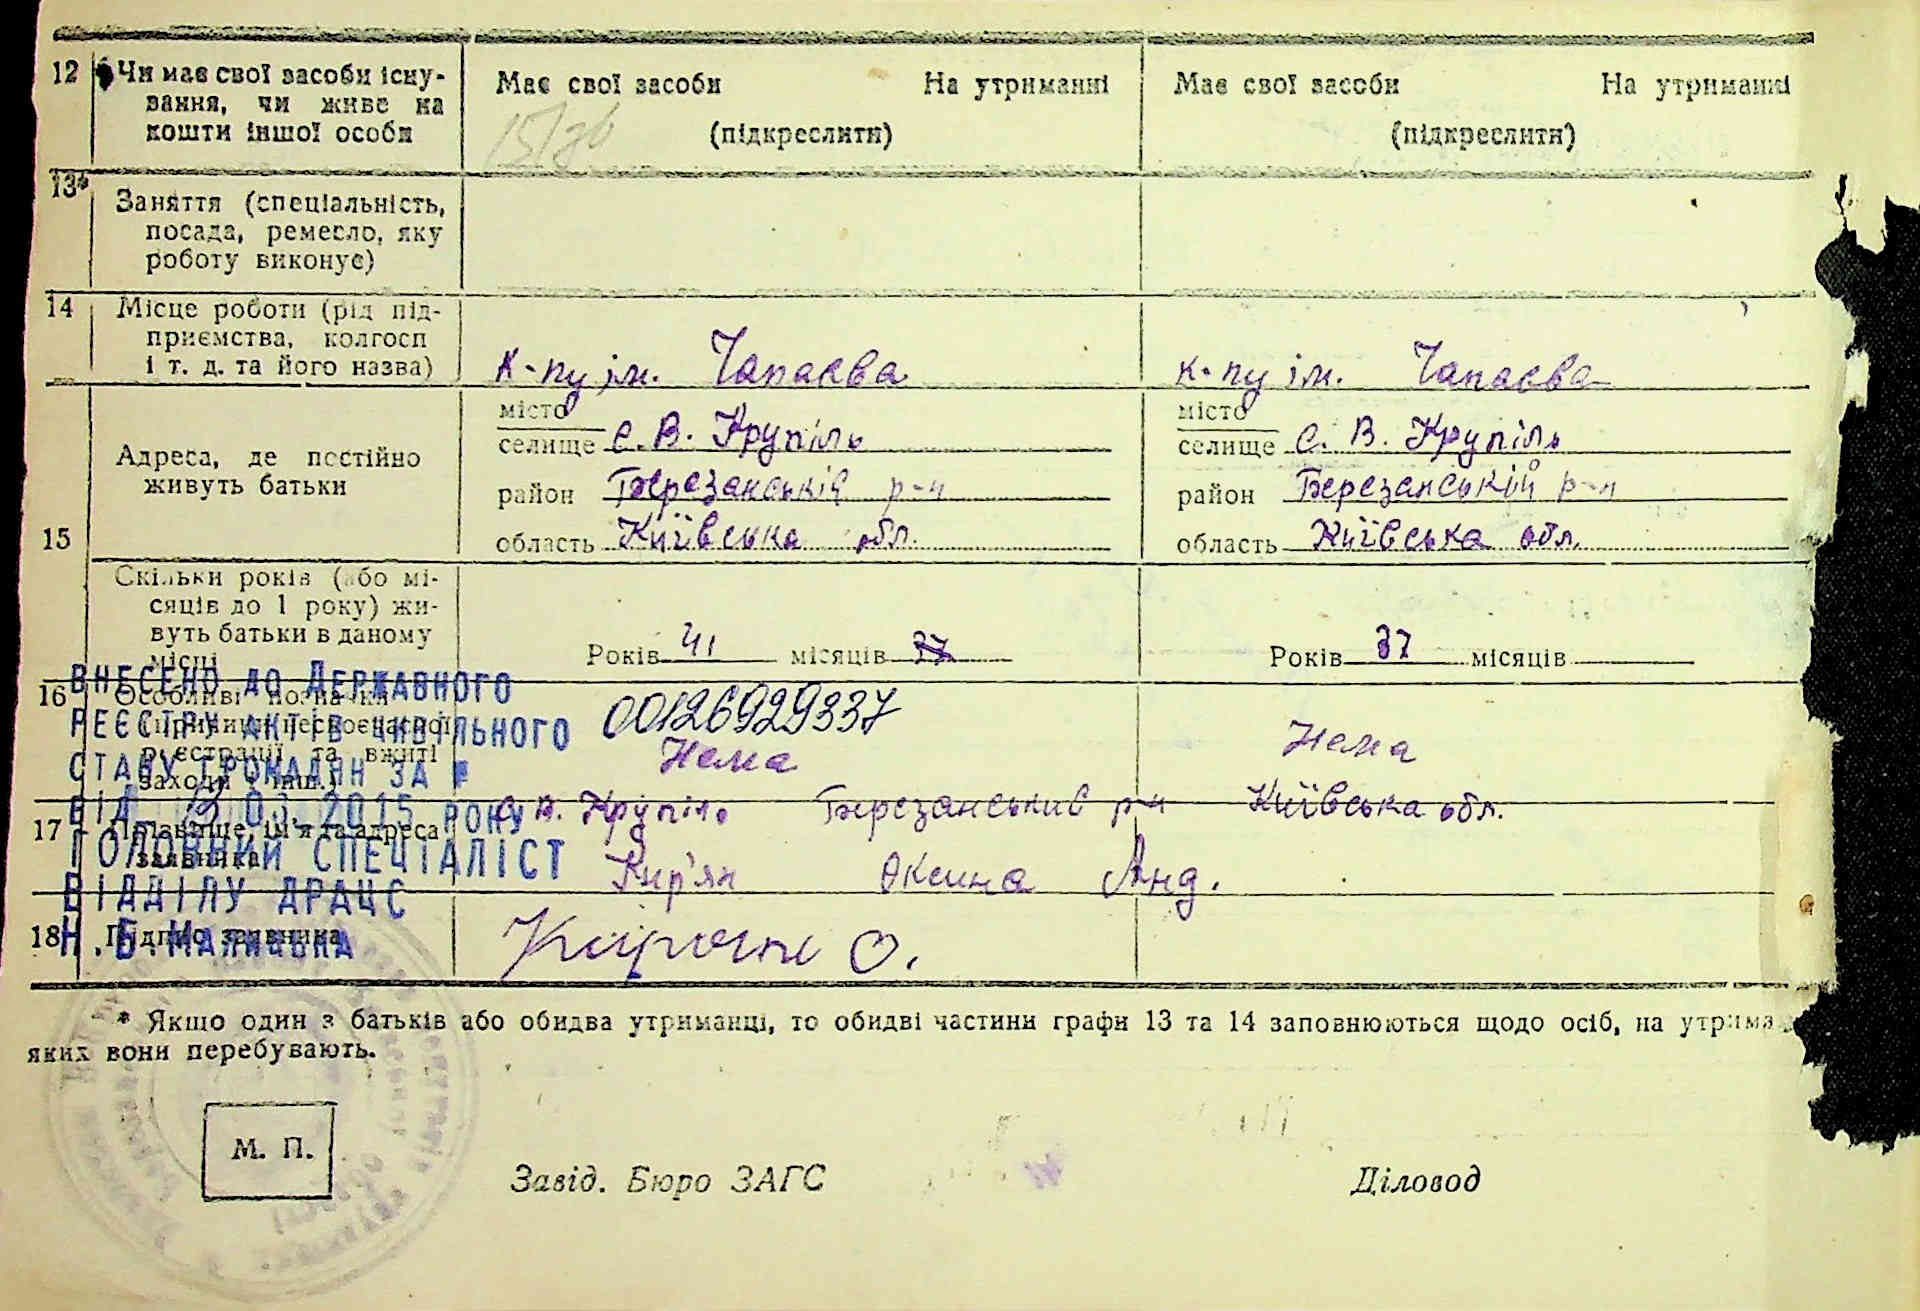 12 Чи має свої засоби існу-
вання, чи живе на
кошти іншої особи
Має свої засоби На утриманні
(підкреслити)
Має свої засоби На утриманні
(підкреслити)
13* Заняття (спеціальність,
посада, ремесло, яку
роботу виконує)
14 Місце роботи (рід під-
приємства, колгосп
і т. д. та його назва)
к-пу ім. Чапаєва
к-пу ім. Чапаєва
15 Адреса, де постійно
живуть батьки
місто
селище с. В. Крупіль
район Березанський р-н
область Київська обл.
місто
селище с. В. Крупіль
район Березанській р-н
область Київська обл.
Скільки років (або мі-
сяців до 1 року) жи-
вуть батьки в даному
місці
Років 41 місяців 37
Років 37 місяців
16 Особливі позначки
(причини несвоєчасної
реєстрації та вжиті
заходи і інш.)
00126929337
Нема
Нема
17 Прізвище, ім'я та адреса
заявника
с. В. Крупіль Березанський р-н Київська обл.
Кир'ян Оксина Анд.
18 Підпис заявника
О.
ВНЕСЕНО ДО ДЕРЖАВНОГО
РЕЄСТРУ АКТІВ ЦИВІЛЬНОГО
СТАНУ ГРОМАДЯН ЗА №
ВІД 03. 2015 РОКУ
ГОЛОВНИЙ СПЕЦІАЛІСТ
ВІДДІЛУ ДРАЦС
Н.Б.
* Якщо один з батьків або обидва утриманці, то обидві частини графи 13 та 14 заповнюються щодо осіб, на
яких вони перебувають.
М. П.
Завід. Бюро ЗАГС Діловод